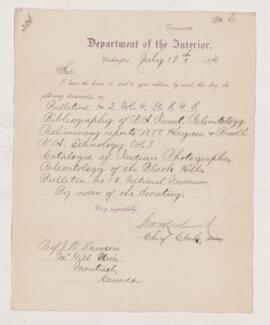 Documents
Department of the Interior.
Washington, July 19th, 1878
Sir
I have the honor to send to your address, by mail, this day, the
following documents, viz:
Bulletins
Bibliography of N.A. Invert. Paleontology
Preliminary reports
N.A. Ethnology Vol 3.
Catalogue of Indian Photographs
Paleontology of the Black Hills
Bulletin No. 10. National Museum,
By order of the Secretary.
Very respectfully,
Chief Clerk,
Prof J. W. Dawson
McGill Univ
Montreal,
Canada